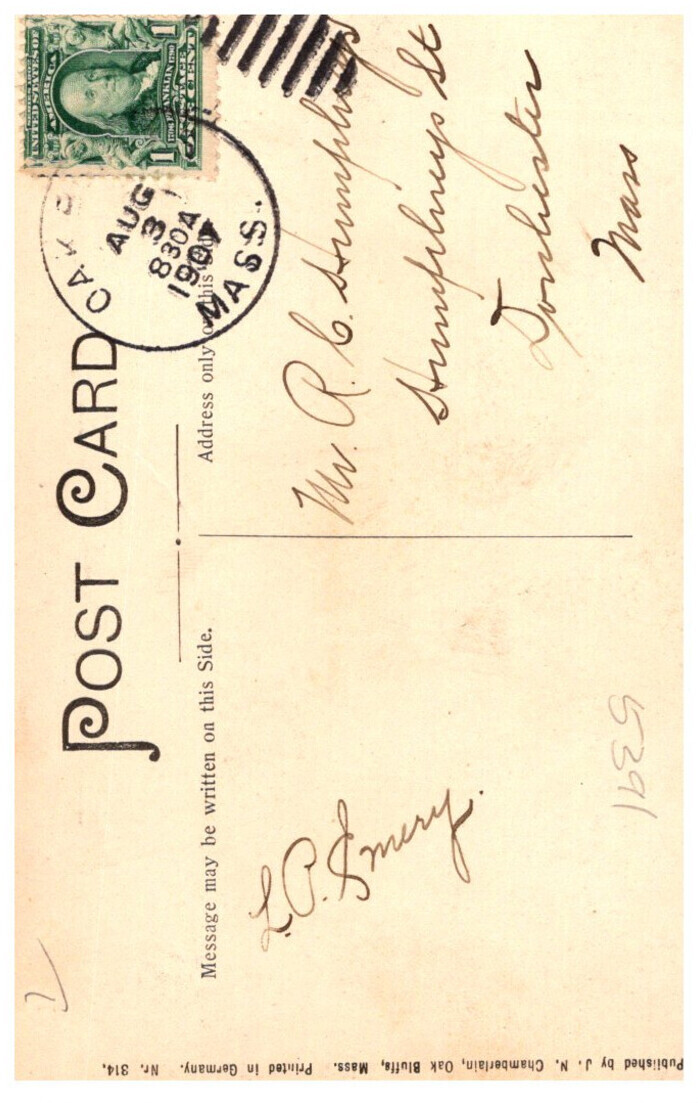 POST CARD
Message may be written on this Side.
Address only on this
UNITED STATES OF
AMERICA
FRANKLIN
POSTAGE
1 1
AUG
3
830A
1907
MASS.
Mr. R. C. Humphreys
Humphreys St
Dorchester
Mass
L. P. Emery.
5391
Published by J. N. Chamberlain, Oak Bluffs, Mass. Printed in Germany. Nr. 314.